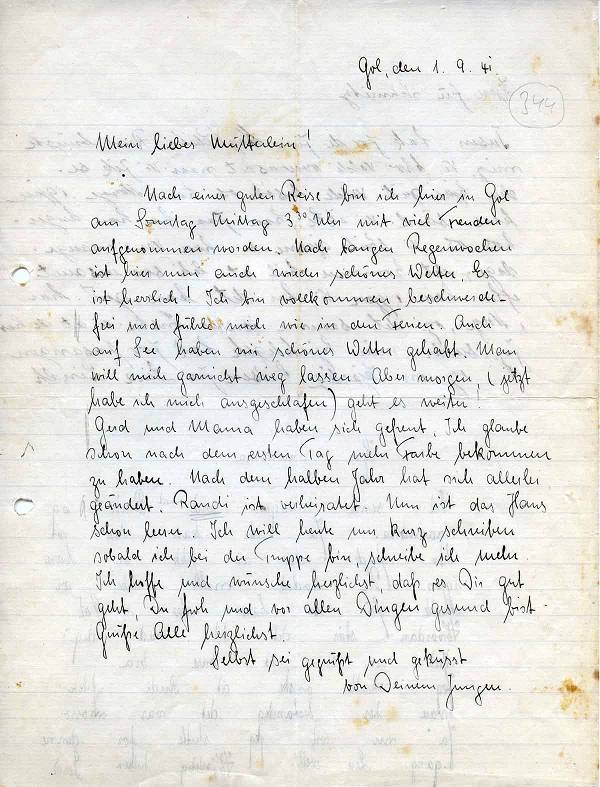 Gol, den 1. 9. 41.
344
Mein liebes Mütterlein!
Nach einer guten Reise bin ich hier in Gol
am Sonntag Mittag 3³⁰ Uhr mit viel Freuden
aufgenommen worden. Nach langen Regenwochen
ist hier nun auch wieder schönes Wetter. Es
ist herrlich! Ich bin vollkommen beschwerde-
frei und fühle mich wie in den Ferien. Auch
auf See haben wir schönes Wetter gehabt. Man
will mich garnicht weg lassen. Aber morgen, (jetzt
habe ich mich ausgeschlafen) geht es weiter!
Gerd und Mama haben sich gefreut. Ich glaube
schon nach dem ersten Tag mehr Farbe bekommen
zu haben. Nach dem halben Jahr hat sich allerlei
geändert. Randi ist verheiratet. Nun ist das Haus
schon leerer. Ich will heute nur kurz schreiben
sobald ich bei der Truppe bin, schreibe ich mehr.
Ich hoffe und wünsche herzlichst, daß es Dir gut
geht, Du froh und vor allen Dingen gesund bist.
Grüße Alle herzlichst
Selbst sei gegrüßt und geküsst
von Deinem Jungen.